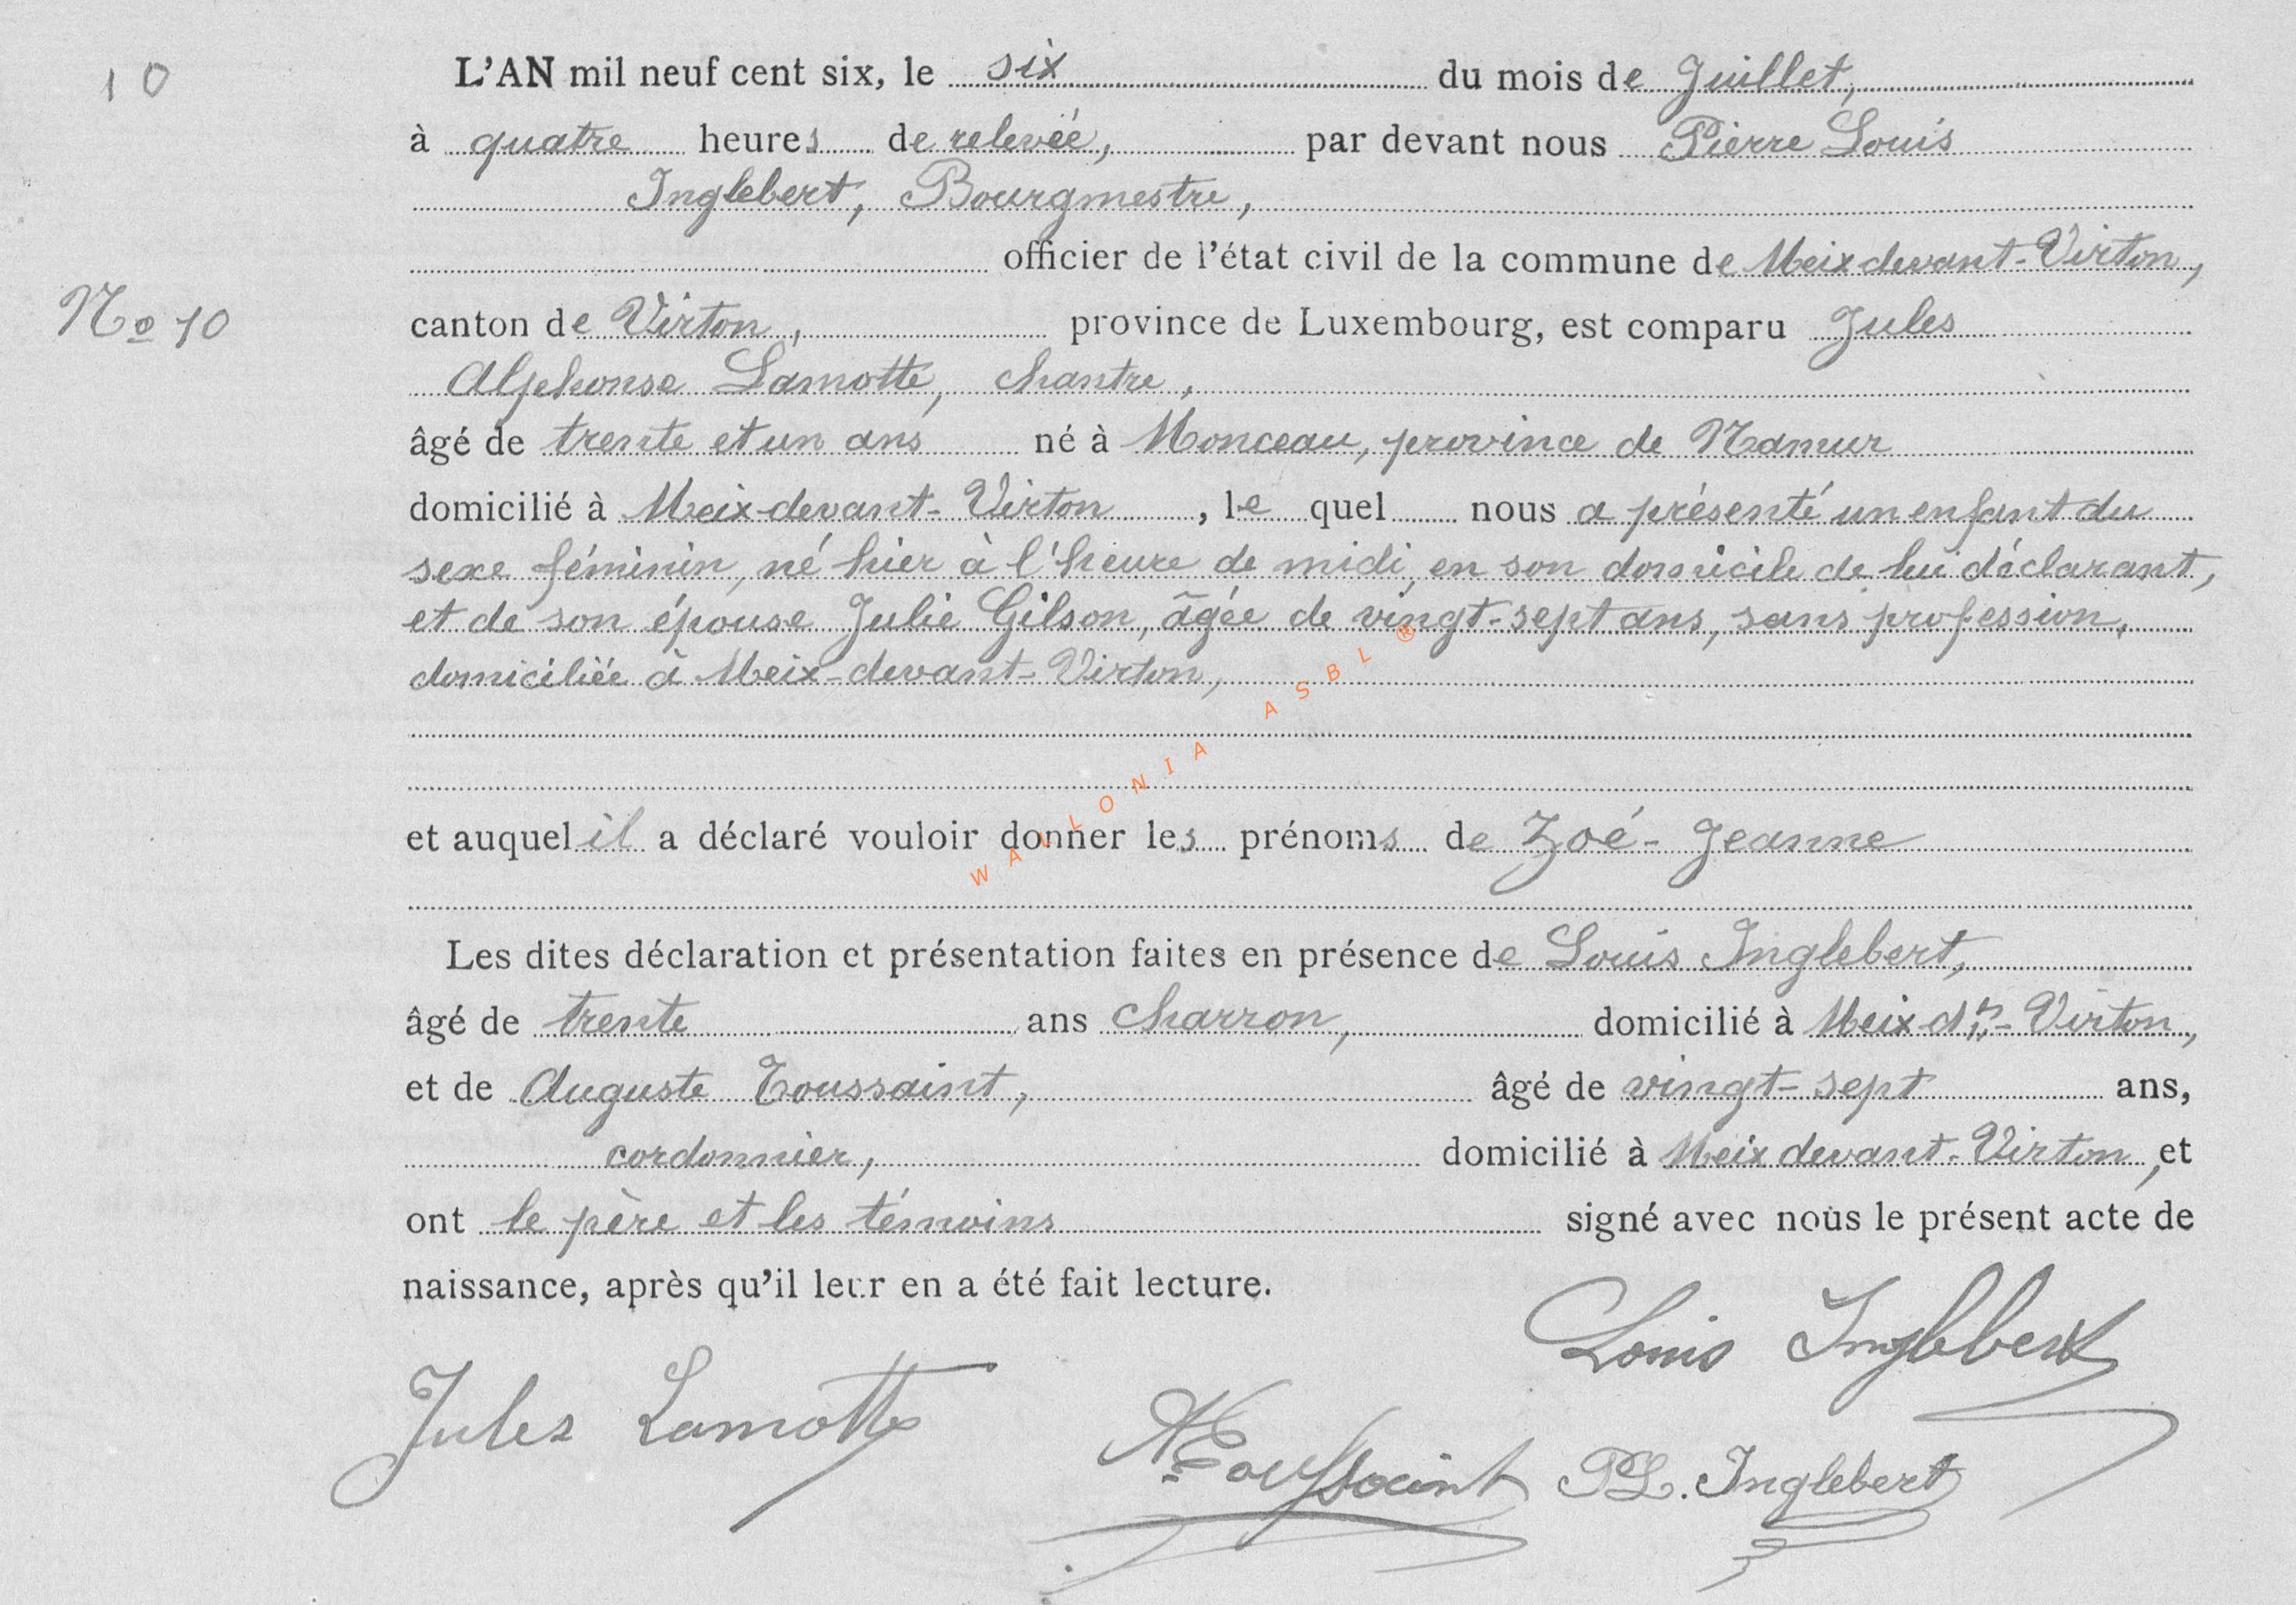 10
L'AN mil neuf cent six, le six du mois de Juillet,
à quatre heures de relevée, par devant nous Pierre Louis
Inglebert, Bourgmestre,
officier de l'état civil de la commune de Meix devant-Virton,
N° 10
canton de Virton, province de Luxembourg, est comparu Jules
Alphonse Lamotte, chantre,
âgé de trente et un ans né à Monceau, province de Namur
domicilié à Meix-devant-Virton, le quel nous a présenté un enfant du
sexe féminin, né hier à l'heure de midi, en son domicile de lui déclarant,
et de son épouse Julie Gilson, âgée de vingt-sept ans, sans profession,
domiciliée à Meix-devant-Virton,
WALLONIA ASBL ®
et auquel il a déclaré vouloir donner les prénoms de Zoé-Jeanne
Les dites déclaration et présentation faites en présence de Louis Inglebert,
âgé de trente ans charron, domicilié à Meix-dt-Virton,
et de Auguste Toussaint, âgé de vingt-sept ans,
cordonnier, domicilié à Meix devant-Virton, et
ont le père et les témoins signé avec nous le présent acte de
naissance, après qu'il leur en a été fait lecture.
Louis Inglebert
Jules Lamotte
A. Toussaint PL. Inglebert